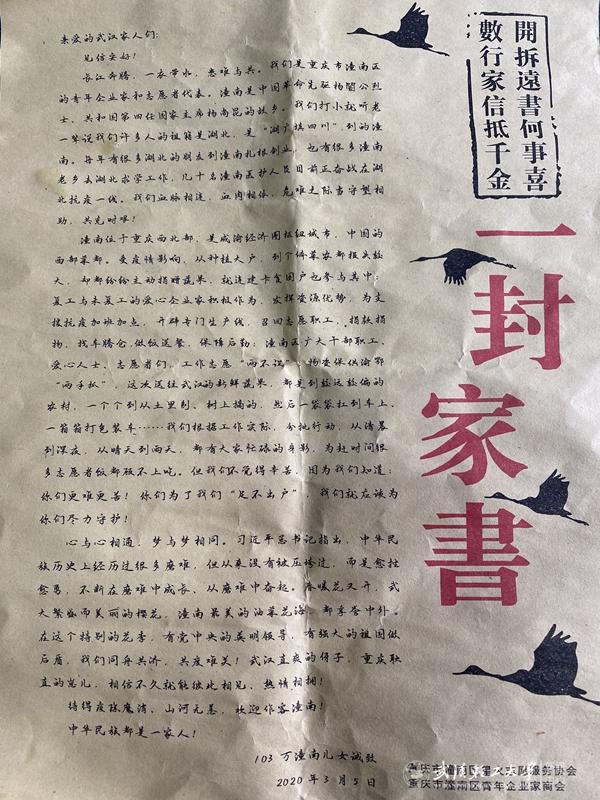 開拆遠書何事喜
數行家信抵千金
一封家書
亲爱的武汉家人们:
见信安好!
长江奔腾,一衣带水,患难与共。我们是重庆市潼南区
的青年企业家和志愿者代表。潼南是中国革命先驱杨闇公烈
士、共和国第四任国家主席杨尚昆的故乡。我们打小就听老
一辈说我们许多人的祖籍是湖北,是“湖广填四川”到的潼
南。每年有很多湖北的朋友到潼南扎根创业,也有很多潼南
老乡去湖北求学工作,几十名潼南医护人员目前正奋战在湖
北抗疫一线。我们血脉相连,血肉相依,危难之际当守望相
助,共克时艰!
潼南位于重庆西北部,是成渝经济圈枢纽城市,中国的
西部菜都。受疫情影响,从种植大户,到个体菜农都损失较
大,却都纷纷主动捐赠蔬菜,就连建卡贫困户也参与其中;
复工与未复工的爱心企业家积极作为,发挥资源优势,为支
援抗疫加班加点,开辟专门生产线,召回志愿职工,捐款捐
物,找车腾仓,做饭送餐,保障后勤;潼南区广大干部职工、
爱心人士、志愿者们,工作志愿“两不误”,物资保供渝鄂
“两手抓”,这次送往武汉的新鲜蔬菜,都是到较远较偏的
农村,一个个到从土里刨、树上摘的,然后一袋袋扛到车上、
一箱箱打包装车……我们根据工作实际,分批行动,从清晨
到深夜,从晴天到雨天,都有大家忙碌的身影,为赶时间很
多志愿者饭都顾不上吃。但我们不觉得辛苦,因为我们知道:
你们更难更苦!你们为了我们“足不出户”,我们就应该为
你们尽力守护!
心与心相通,梦与梦相同。习近平总书记指出,中华民
族历史上经历过很多磨难,但从来没有被压垮过,而是愈挫
愈勇,不断在磨难中成长、从磨难中奋起。春暖花又开,武
大繁盛而美丽的樱花,潼南最美的油菜花海,都享誉中外。
在这个特别的花季,有党中央的英明领导,有强大的祖国做
后盾,我们同舟共济,共度难关!武汉直爽的伢子,重庆耿
直的崽儿,相信不久就能彼此相见、热情相拥!
待得疫除魔消,山河无恙,欢迎作客潼南!
中华民族都是一家人!
103 万潼南儿女诚致
2020 年 3 月 5 日
重庆市潼南区星火志愿服务协会
重庆市潼南区青年企业家商会